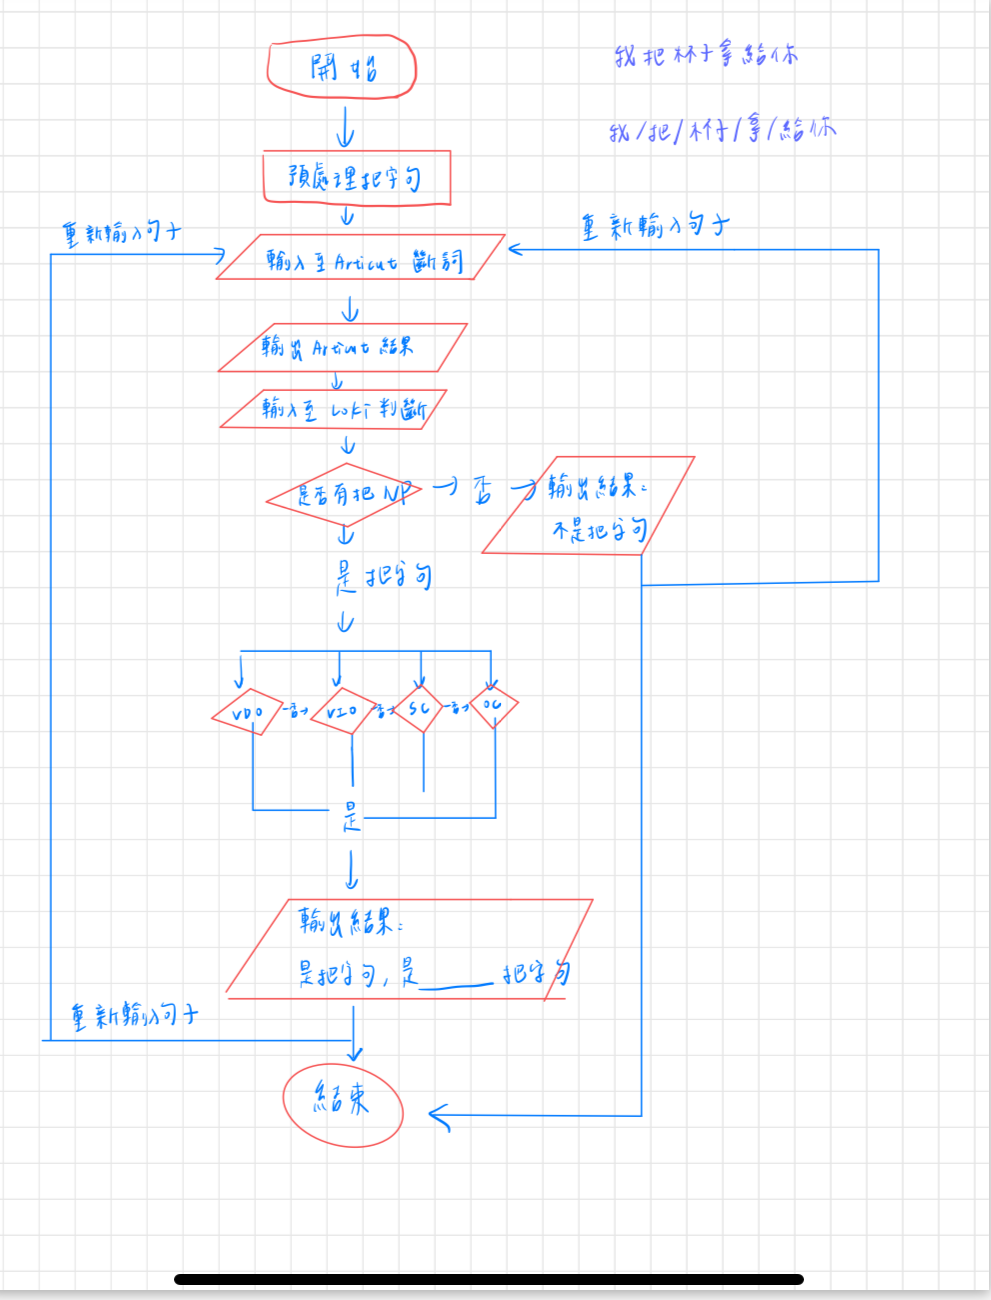 開始
我把杯子拿給你
我/把/杯子/拿/給你
預處理把字句
重新輸入句子
重新輸入句子
輸入至Articut 斷詞
輸出Articut 結果
輸入至 Loki 判斷
是否有把 NP
否
輸出結果:
不是把字句
是把字句
VDO
否
VIO
否
SC
否
OC
是
輸出結果:
是把字句, 是______把字句
重新輸入句子
結束